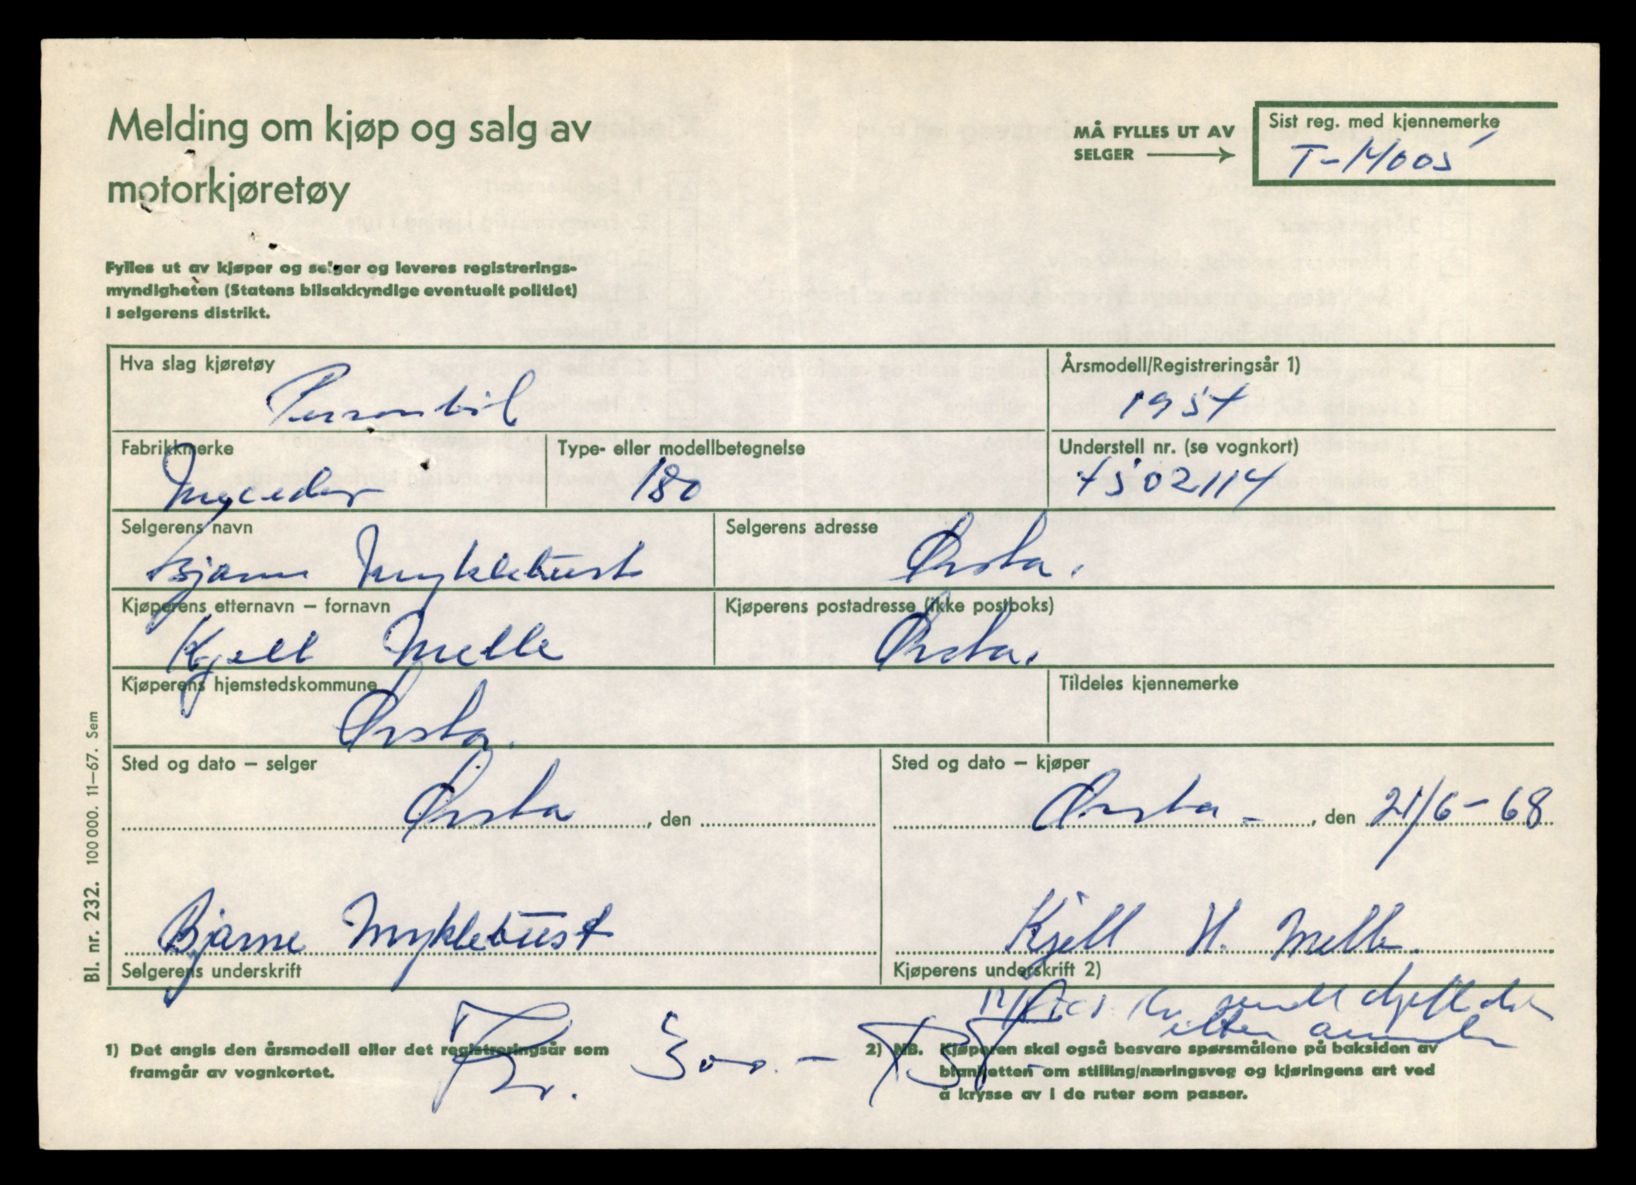 Melding om kjøp og salg av
motorkjøretøy
MÅ FYLLES UT AV
SELGER
Sist reg. med kjennemerke
T-14005
Fylles ut av kjøper og selger og leveres registrerings-
myndigheten (Statens bilsakkyndige eventuelt politiet)
i selgerens distrikt.
Hva slag kjøretøy
Personbil
Årsmodell/Registreringsår 1)
1957
Fabrikkmerke
Type- eller modellbetegnelse
180
Understell nr. (se vognkort)
7502114
Selgerens navn
Bjarne Myklebust
Selgerens adresse
Ørsta.
Kjøperens etternavn – fornavn
Kjell Melle
Kjøperens postadresse (ikke postboks)
Ørsta.
Kjøperens hjemstedskommune
Ørsta.
Tildeles kjennemerke
Sted og dato – selger
Ørsta, den
Sted og dato – kjøper
Ørsta -, den 21/6-68
Bjarne Myklebust
Selgerens underskrift
Kjell H. Melle.
Kjøperens underskrift 2)
Kr. 300.-
1) Det angis den årsmodell eller det registreringsår som
framgår av vognkortet.
2) NB. Kjøperen skal også besvare spørsmålene på baksiden av
blanketten om stilling/næringsveg og kjøringens art ved
å krysse av i de ruter som passer.
Bl. nr. 232. 100 000. 11–67. Sem